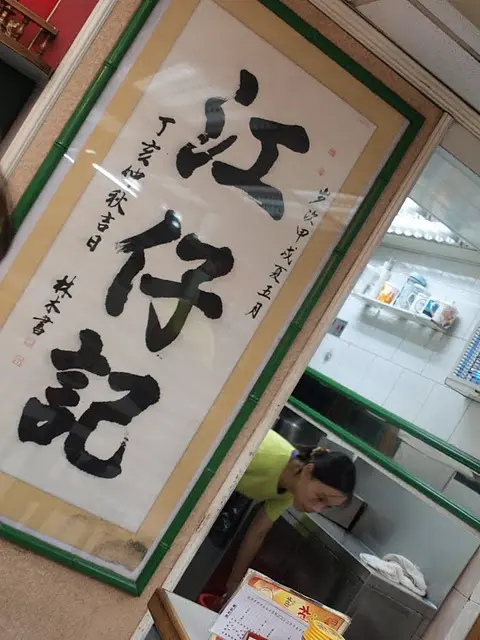 岁次甲戌夏五月
江仔記
丁亥仲秋吉日
林木書